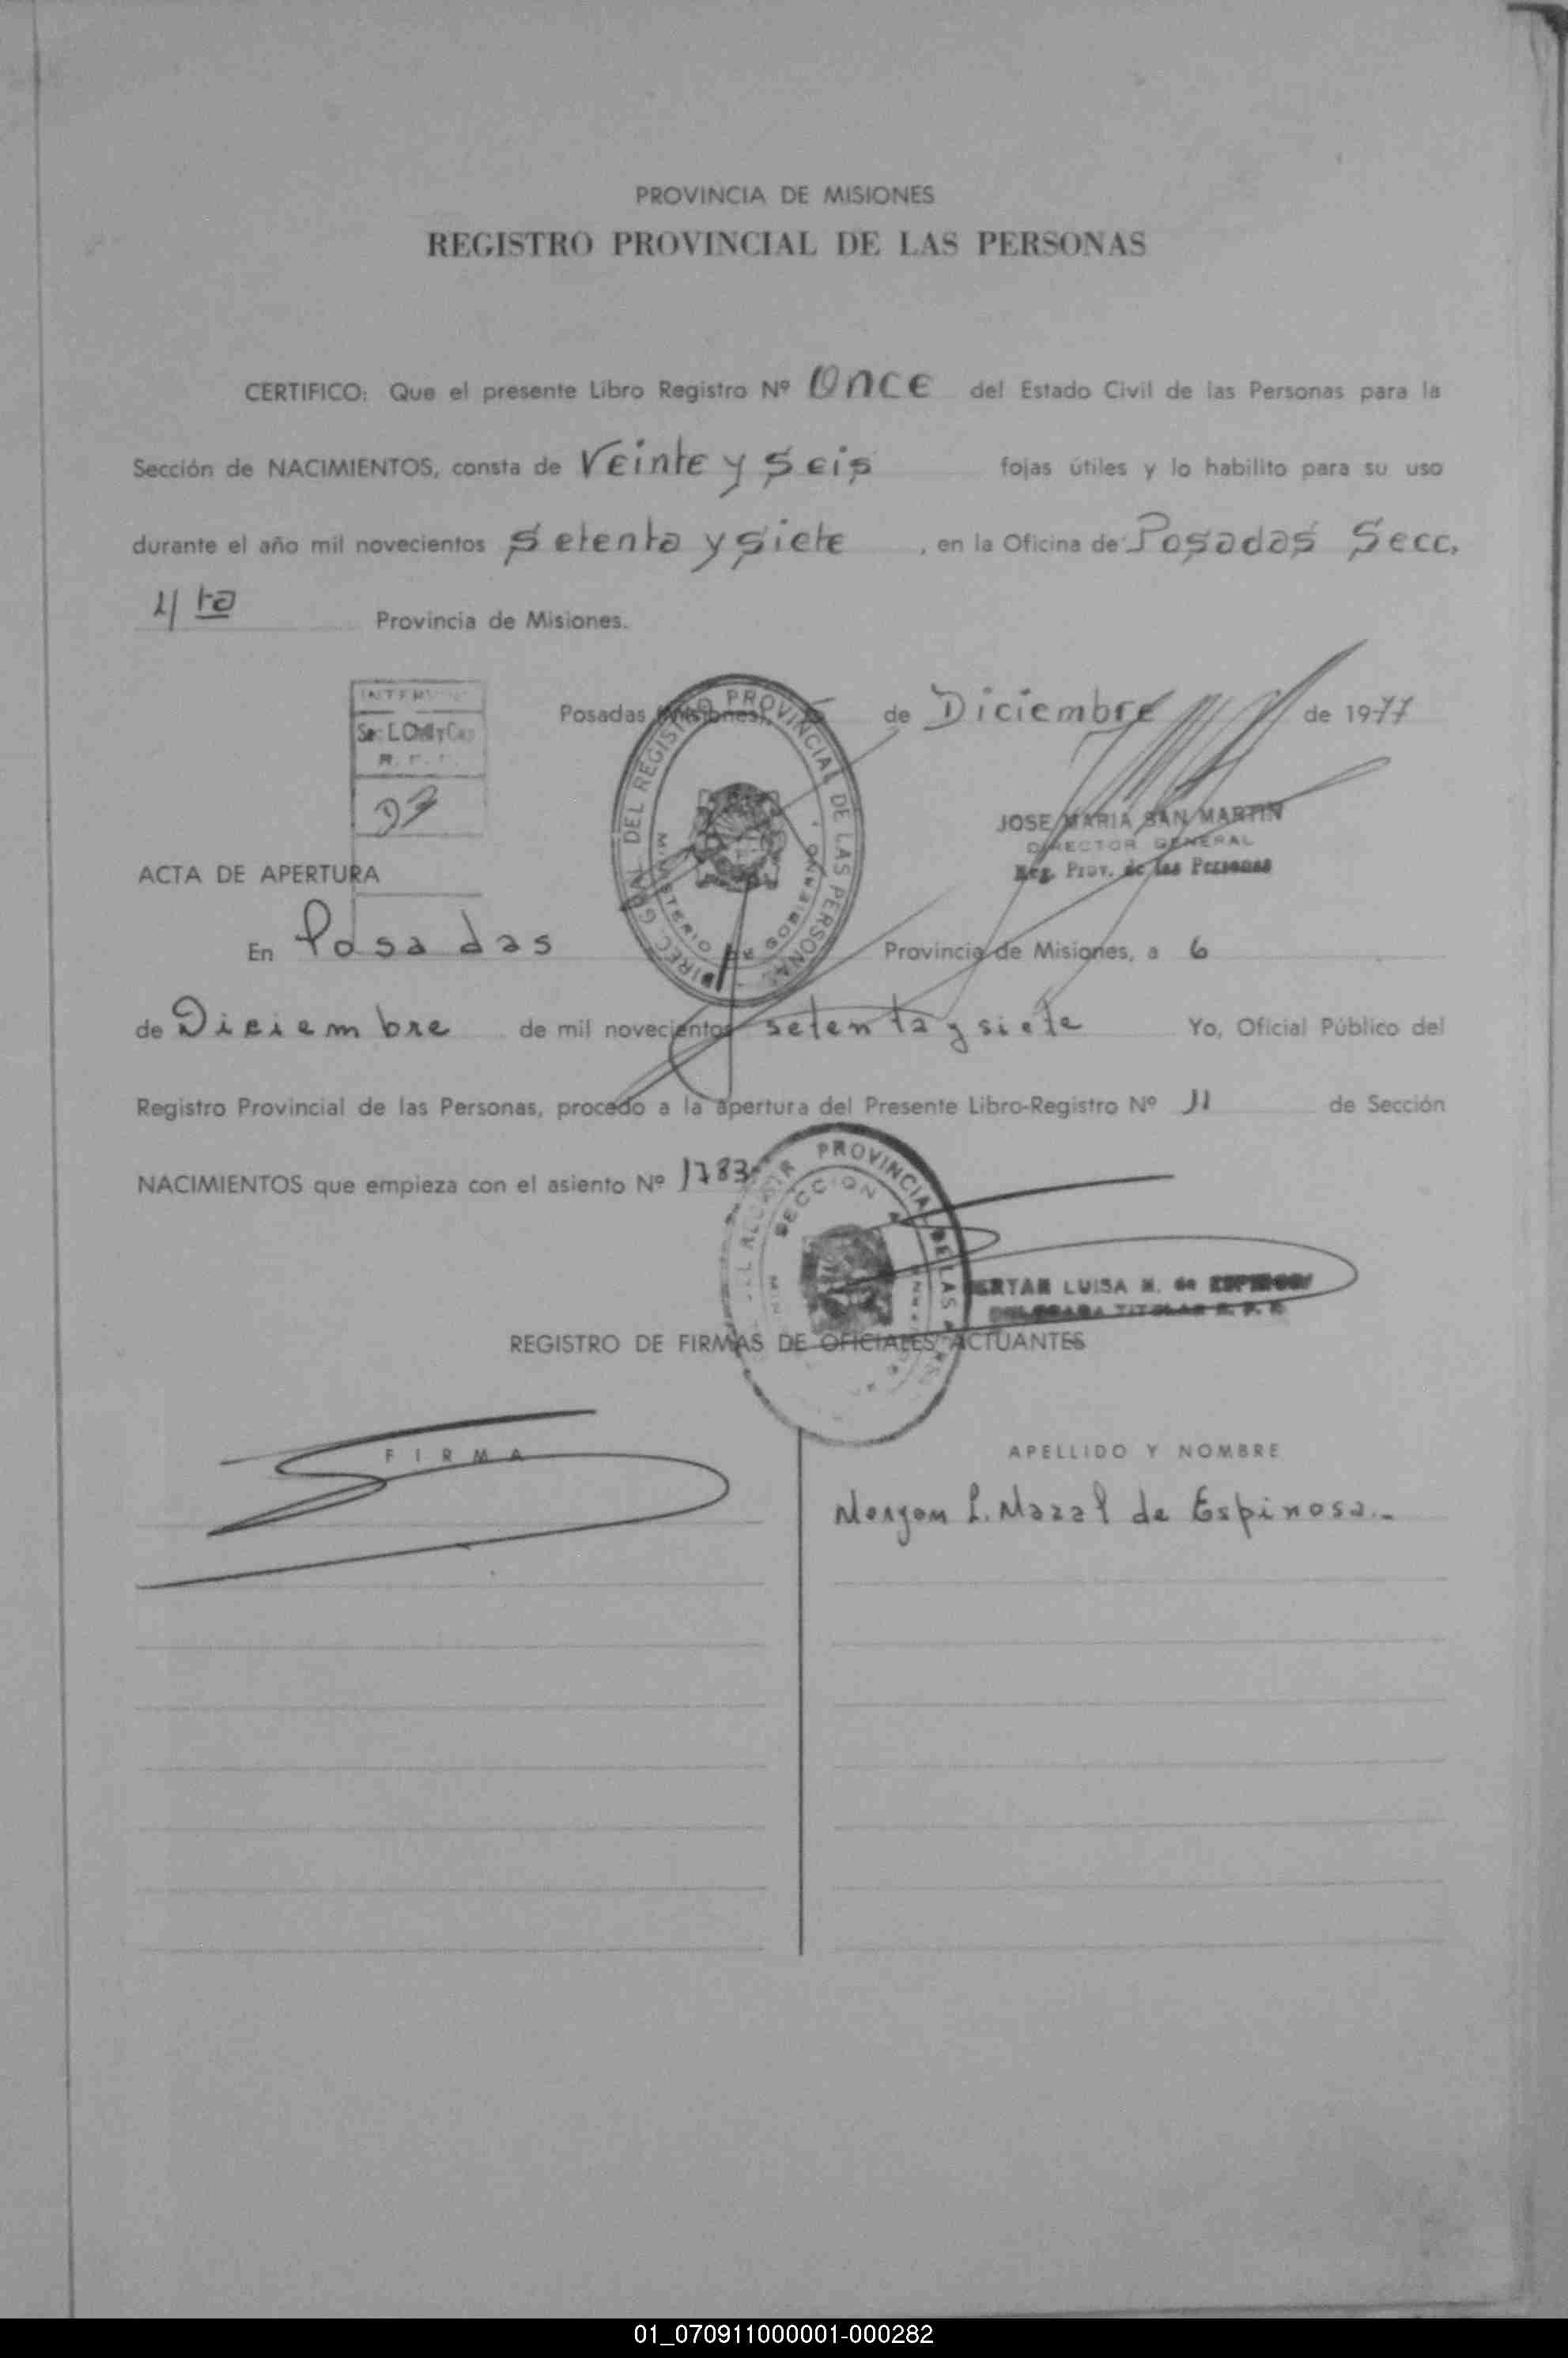 PROVINCIA DE MISIONES
REGISTRO PROVINCIAL DE LAS PERSONAS
CERTIFICO: Que el presente Libro Registro Nº Once del Estado Civil de las Personas para la
Sección de NACIMIENTOS, consta de Veinte y Seis fojas útiles y lo habilito para su uso
durante el año mil novecientos Setenta y Siete, en la Oficina de Posadas Secc.
4ta Provincia de Misiones.
Posadas (Misiones), de Diciembre de 1977
DIREC. GRAL DEL REGISTRO PROVINCIAL DE LAS PERSONAS
MINISTERIO DE GOBIERNO
JOSE MARIA SAN MARTIN
DIRECTOR GENERAL
Reg. Prov. de las Personas
ACTA DE APERTURA
En Posadas Provincia de Misiones, a 6
de Diciembre de mil novecientos setenta y siete Yo, Oficial Público del
Registro Provincial de las Personas, procedo a la apertura del Presente Libro-Registro Nº 11 de Sección
NACIMIENTOS que empieza con el asiento Nº 1783
PROVINCIAL DE LAS
SECCION
LUISA M. de ESPINOSA
REGISTRO DE FIRMAS DE OFICIALES ACTUANTES
FIRMA
APELLIDO Y NOMBRE
L. Mazal de Espinosa.-
01_070911000001-000282